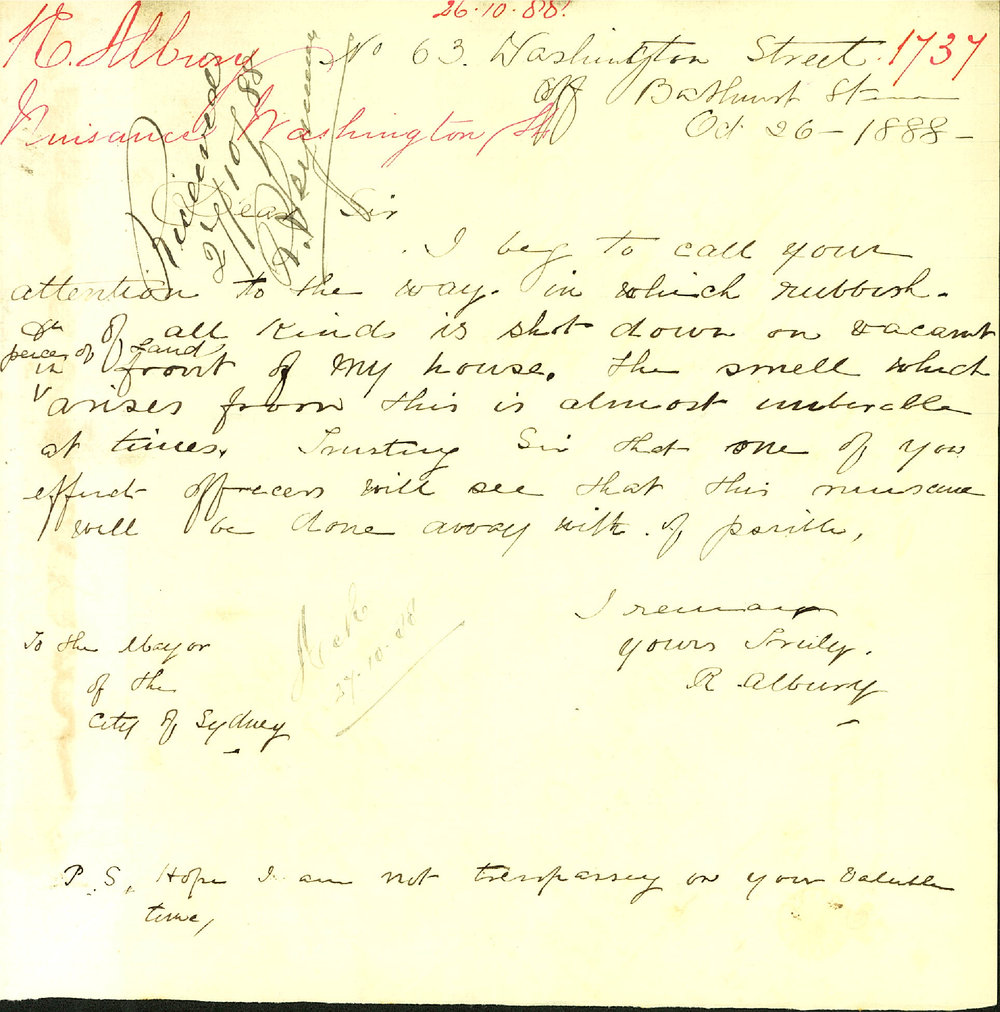 26.10.88.
R. Albury No 63. Washington Street. 1737
off Bathurst St
Nuisance Washington St
Oct 26 - 1888 -
Received
26/10/88
Dear Sir
I beg to call your
attention to the way. in which rubbish.
of all kinds is shot down on vacant
peices of Land
in front of My house. the smell which
arises from this is almost unberable
at times. Trusting Sir that one of you
officers will see that this nuisance
will be done away with. if possible,
I remain
yours Truly.
R Albury
To the Mayor
of the
City of Sydney
27.10.88
P.S, Hope I am not trespassing on your valuble
time,